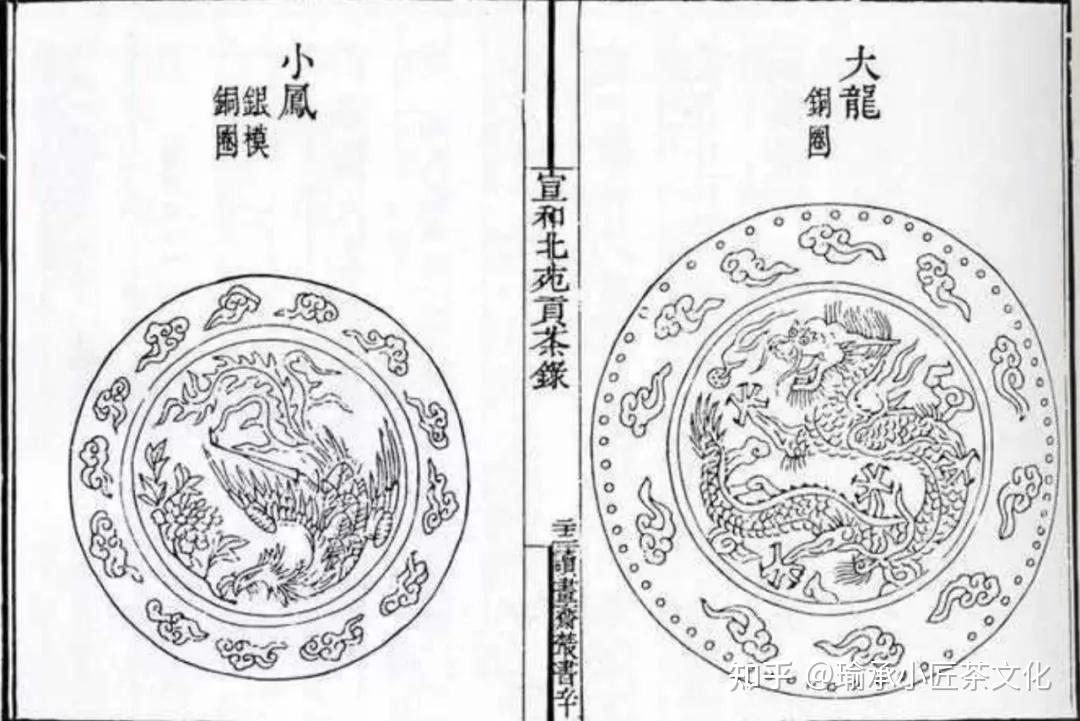 大龍
銅圈
宣和北苑貢茶錄
讀畫齋叢書辛
小鳳
銀模
銅圈
知乎 @瑜承小匠茶文化